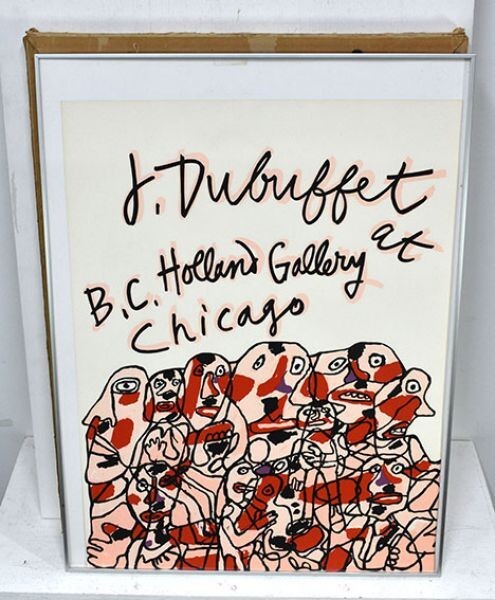 J. Dubuffet
at
B.C. Holland Gallery
Chicago